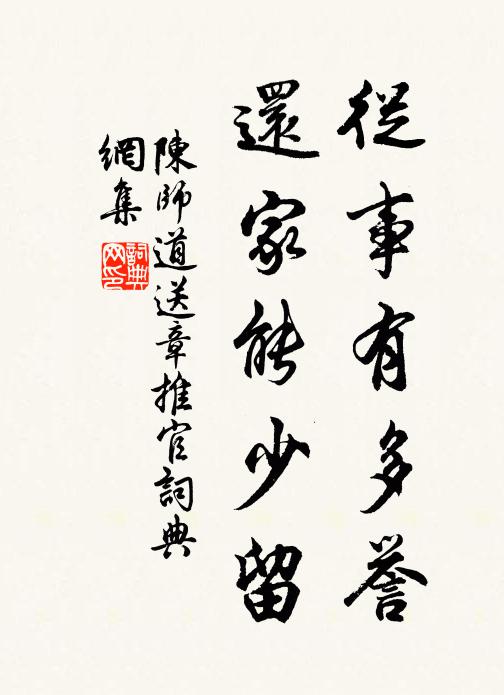 從事有多譽
還家能少留
陳師道送章推官詞典
網集
詞典
网印